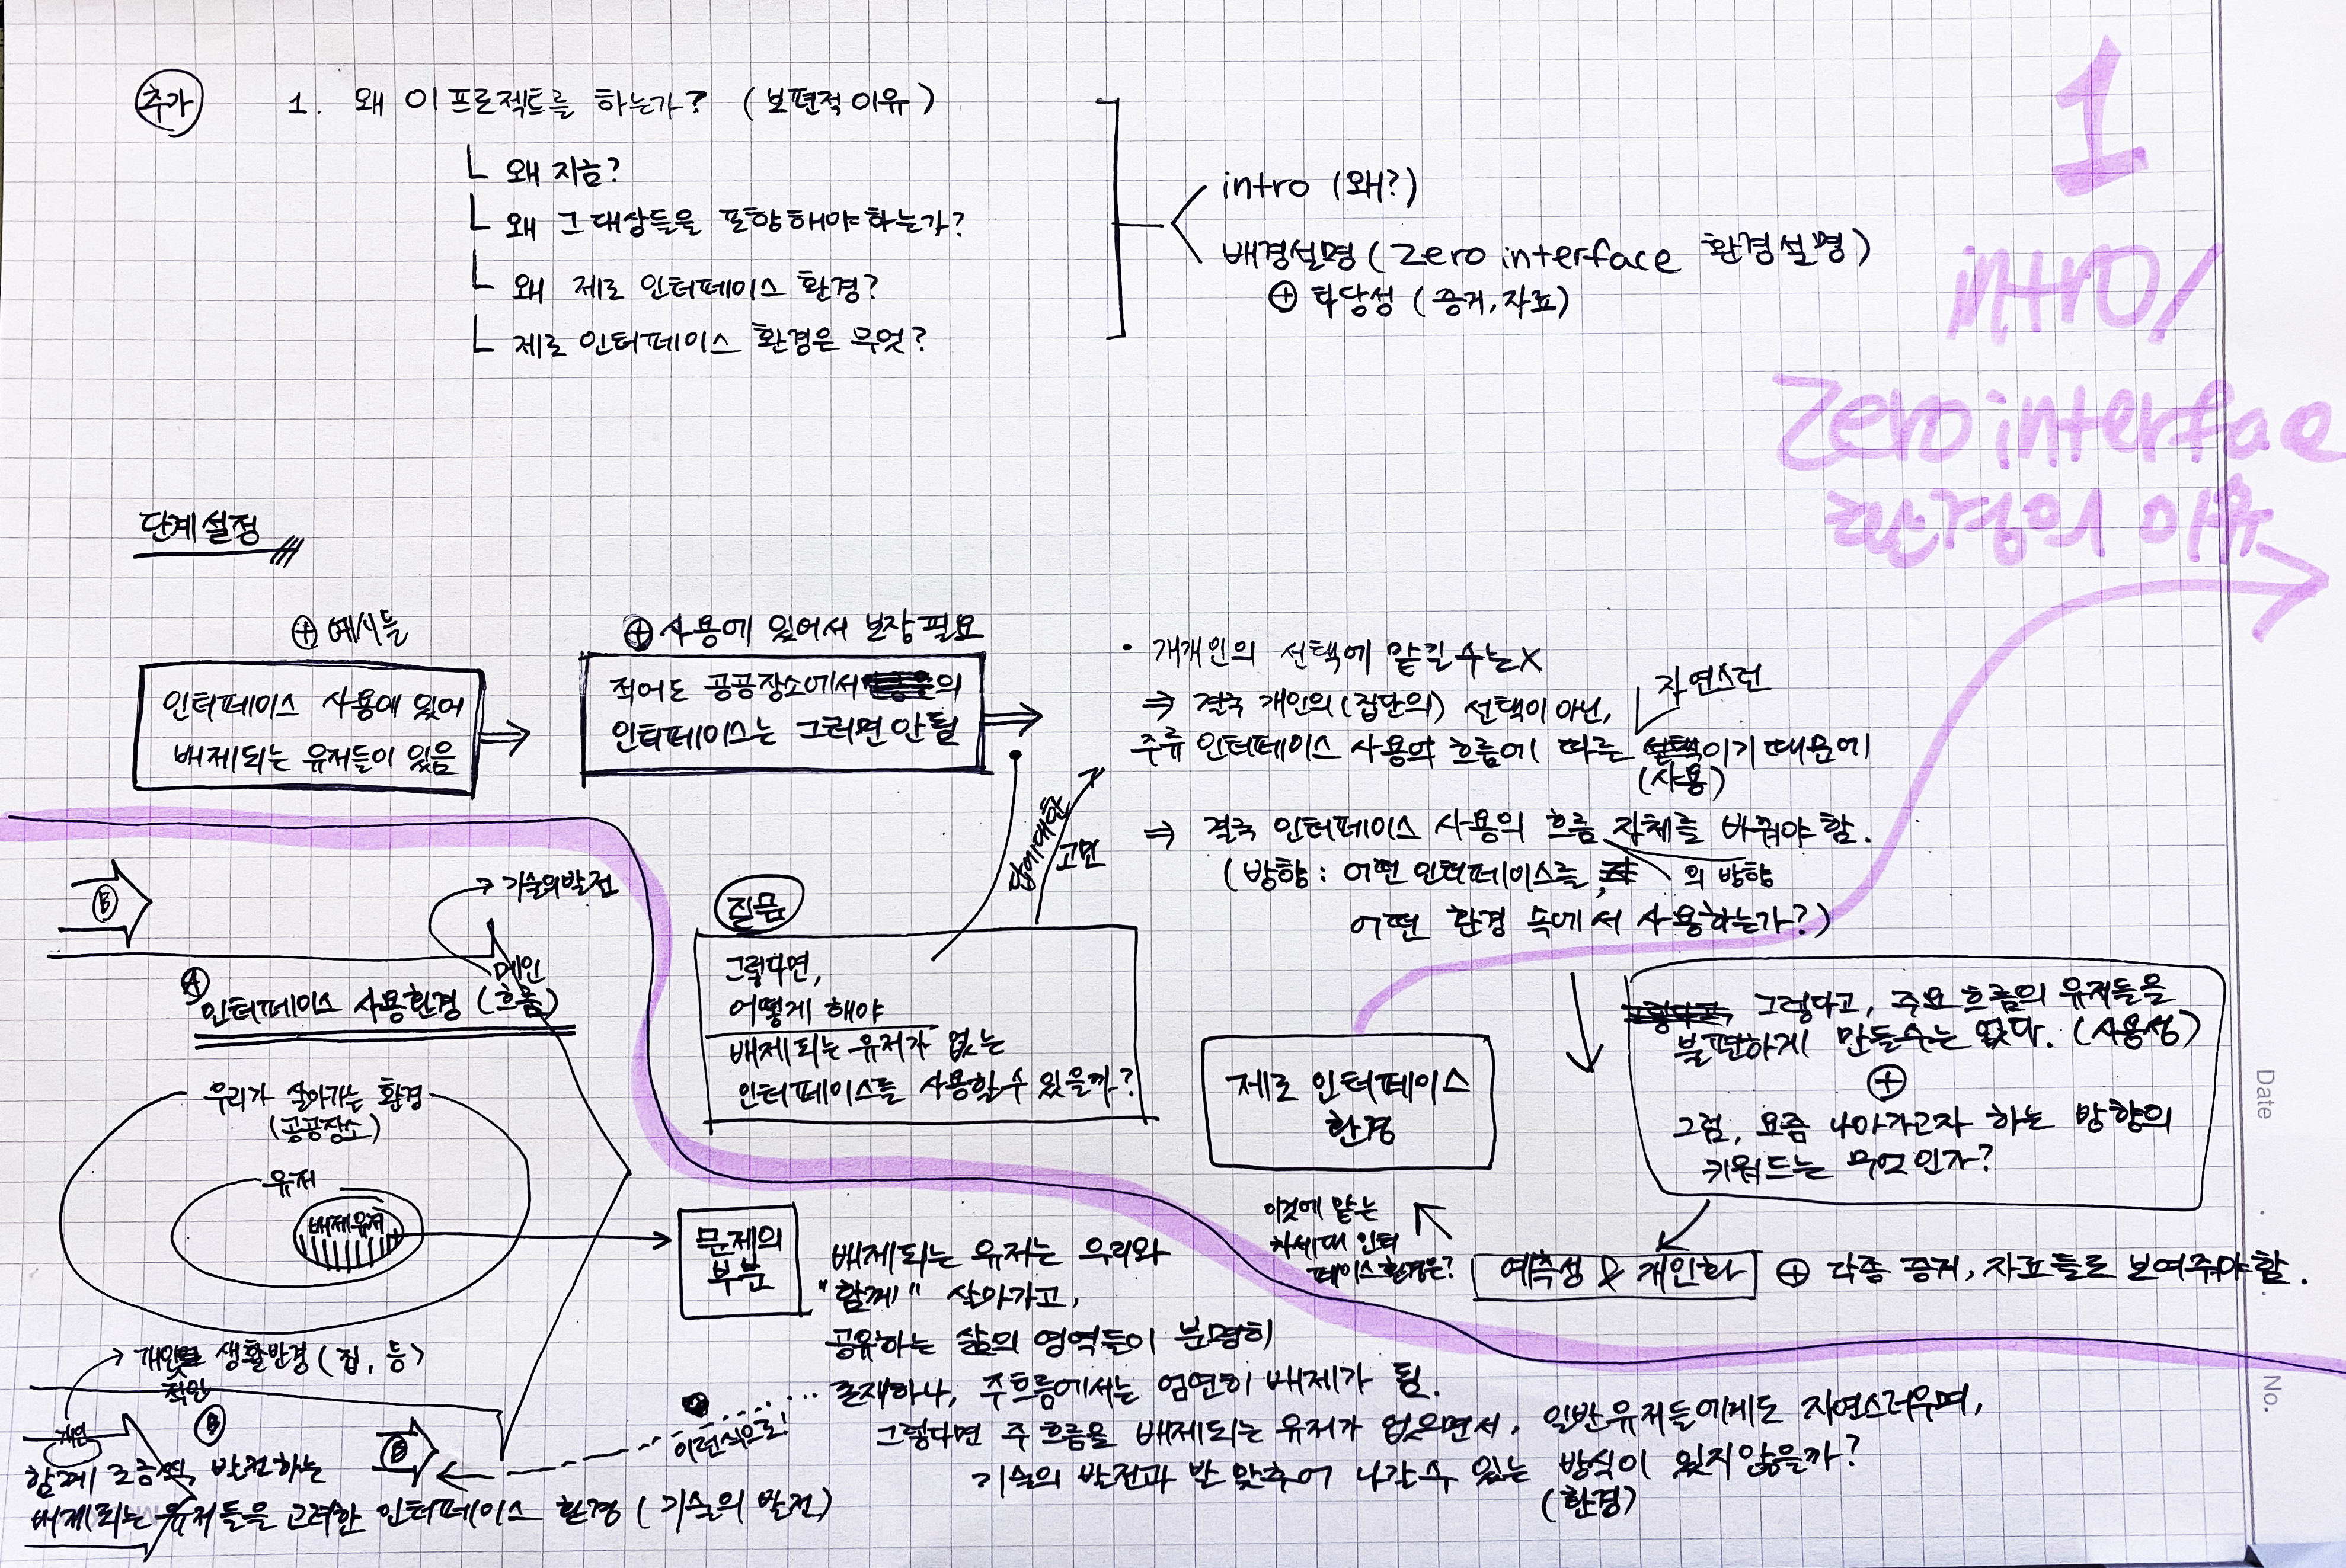 추가
1. 왜 이 프로젝트를 하는가? (보편적 이유)
└ 왜 지금?
└ 왜 그 대상들을 포함해야하는가?
└ 왜 제로 인터페이스 환경?
└ 제로 인터페이스 환경은 무엇?
intro (왜?)
배경설명 (Zero interface 환경설명)
⊕ 타당성 (증거, 자료)
1
intro/
Zero interface
환경의 이유
단계설정
⊕ 예시들
인터페이스 사용에 있어
배제되는 유저들이 있음
⊕ 사용에 있어서 보장 필요
적어도 공공장소에서의
인터페이스는 그러면 안됨
· 개개인의 선택에 맡길 수는 X
⇒ 결국 개인의 (집단의) 선택이 아닌,
자연스런
주류 인터페이스 사용의 흐름에 따른 선택이기 때문에
(사용)
⇒ 결국 인터페이스 사용의 흐름 자체를 바꿔야 함.
의 방향
(방향 : 어떤 인터페이스를,
어떤 환경 속에서 사용하는가?)
답에 대한
고민
질문
그렇다면,
어떻게 해야
배제되는 유저가 없는
인터페이스를 사용할 수 있을까?
그렇다고, 주요 흐름의 유저들을
불편하게 만들수는 없다. (사용성)
⊕
그럼, 요즘 나아가고자 하는 방향의
키워드는 무엇인가?
예측성 & 개인화
⊕ 각종 증거, 자료들로 보여줘야함.
이것에 맞는
차세대 인터
페이스 환경은?
제로 인터페이스
환경
Ⓑ
기술의 발전
메인
Ⓐ 인터페이스 사용환경 (흐름)
우리가 살아가는 환경
(공공장소)
유저
배제유저
문제의
부분
배제되는 유저는 우리와
"함께" 살아가고,
공유하는 삶의 영역들이 분명히
존재하나, 주흐름에서는 엄연히 배제가 됨.
그렇다면 주 흐름을 배제되는 유저가 없으면서, 일반유저들에게도 자연스러우며,
기술의 발전과 발 맞추어 나갈 수 있는 방식이 있지않을까?
(환경)
이런식으로!
생활반경 (집, 등)
개인
Ⓑ
Ⓑ
함께 조금씩 발전하는
배제되는 유저들을 고려한 인터페이스 환경 (기술의 발전)
Date
No.